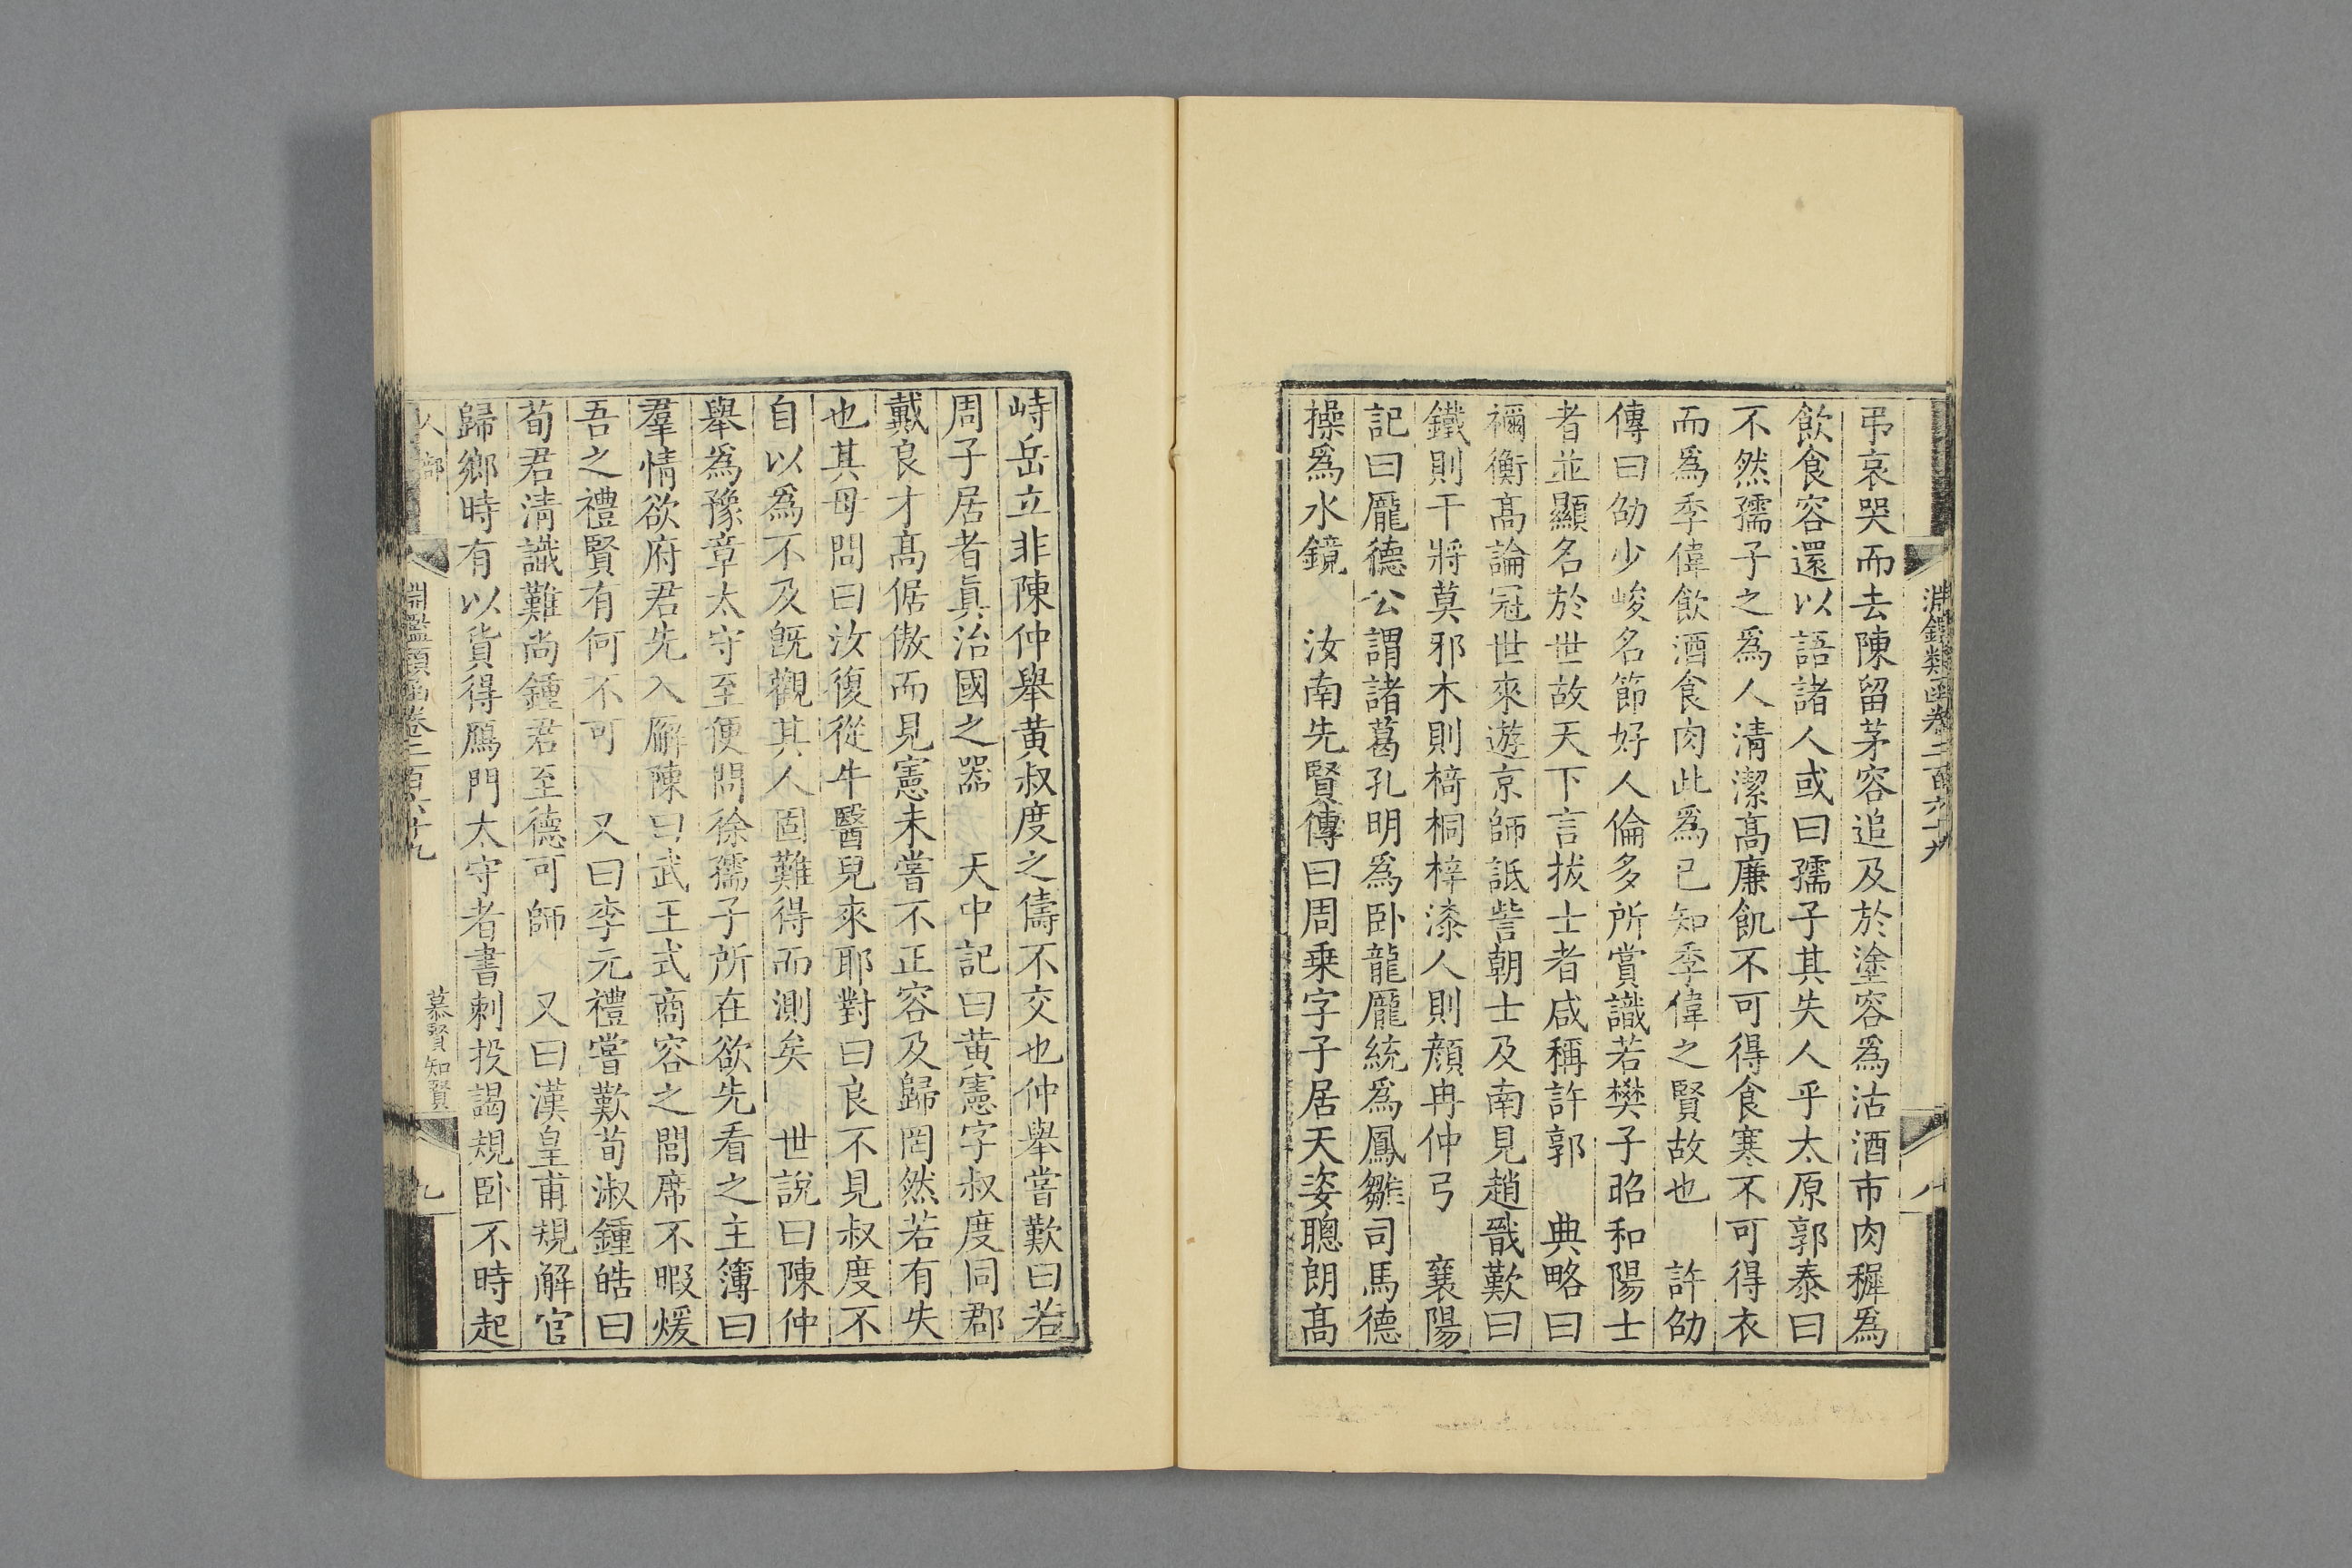 淵鑑類函卷二百六十九
弔哀哭而去陳留茅容追及於塗容爲沽酒市肉穉爲
飲食容還以語諸人或曰孺子其失人乎太原郭泰曰
不然孺子之爲人清潔髙廉飢不可得食寒不可得衣
而爲季偉飲酒食肉此爲已知季偉之賢故也 許劭
傳曰劭少峻名節好人倫多所賞識若樊子昭和陽士
者並顯名於世故天下言拔士者咸稱許郭 典略曰
禰衡髙論冠世來遊京師詆訾朝士及南見趙戩歎曰
鐵則干將莫邪木則椅桐梓漆人則顔冉仲弓 襄陽
記曰龐德公謂諸葛孔明爲卧龍龐統爲鳳雛司馬德
操爲水鏡 汝南先賢傳曰周乗字子居天姿聰朗髙
峙岳立非陳仲舉黄叔度之儔不交也仲舉嘗歎曰若
周子居者眞治國之器 天中記曰黄憲字叔度同郡
戴良才髙倨傲而見憲未嘗不正容及歸罔然若有失
也其母問曰汝復從牛醫兒來耶對曰良不見叔度不
自以爲不及旣觀其人固難得而測矣 世説曰陳仲
舉爲豫章太守至便問徐孺子所在欲先看之主簿曰
羣情欲府君先入廨陳曰武王式商容之閭席不暇煖
吾之禮賢有何不可 又曰李元禮嘗歎荀淑鍾皓曰
荀君清識難尚鍾君至德可師 又曰漢皇甫規解官
歸鄉時有以貨得鴈門太守者書刺投謁規卧不時起
人部 淵鑑類函卷二百六十九 慕賢知賢 九